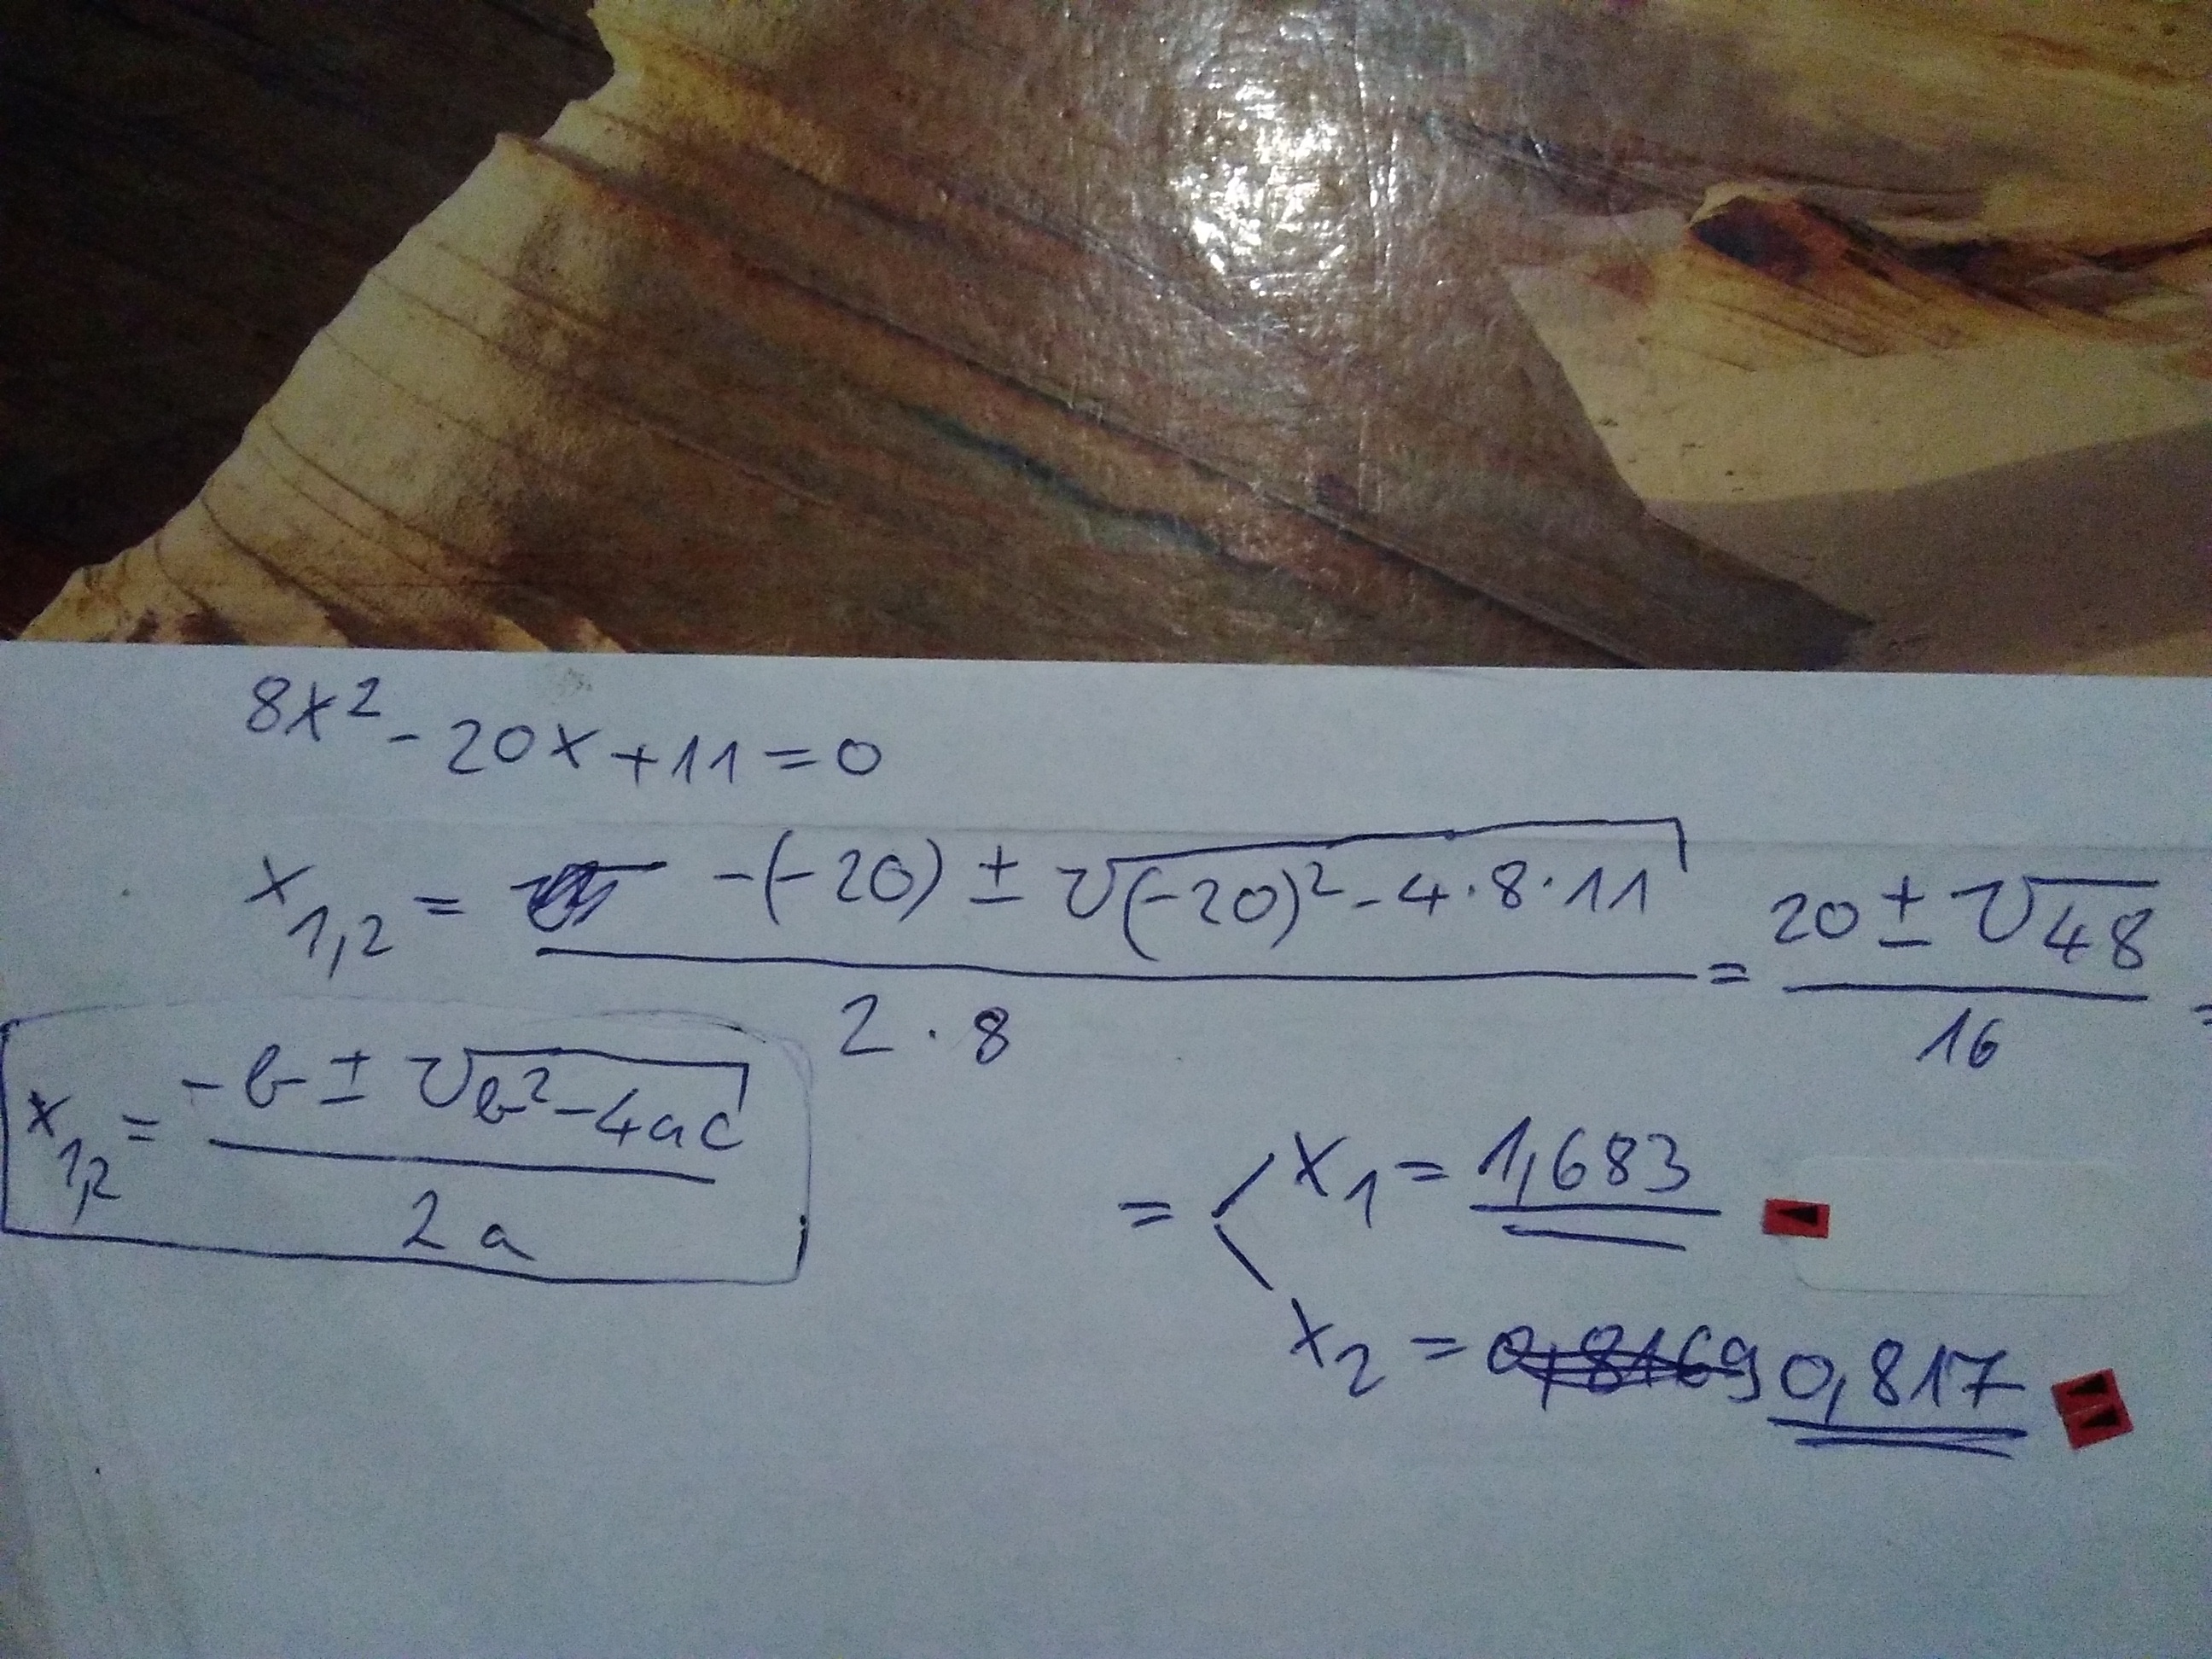 8x² - 20x + 11 = 0
x₁,₂ = -(-20) ± √(-20)² - 4·8·11 / 2·8 = 20 ± √48 / 16 =
x₁,₂ = -b ± √b² - 4ac / 2a
= < x₁ = 1,683
x₂ = 0,8169 0,817